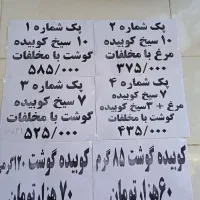 پک شماره ۱
۱۰ سیخ کوبیده
گوشت با مخلفات
۵۸۵/۰۰۰
پک شماره ۲
۱۰ سیخ کوبیده
مرغ با مخلفات
۳۷۵/۰۰۰
پک شماره ۳
۷ سیخ کوبیده
گوشت با مخلفات
۵۲۵/۰۰۰
پک شماره ۴
۷ سیخ کوبیده
مرغ + ۳سیخ کوبیده
گوشت با مخلفات
۴۳۵/۰۰۰
کوبیده گوشت ۱۲۰گرمی
۷۰ هزارتومان
کوبیده گوشت ۸۵ گرم
۶۰هزارتومان